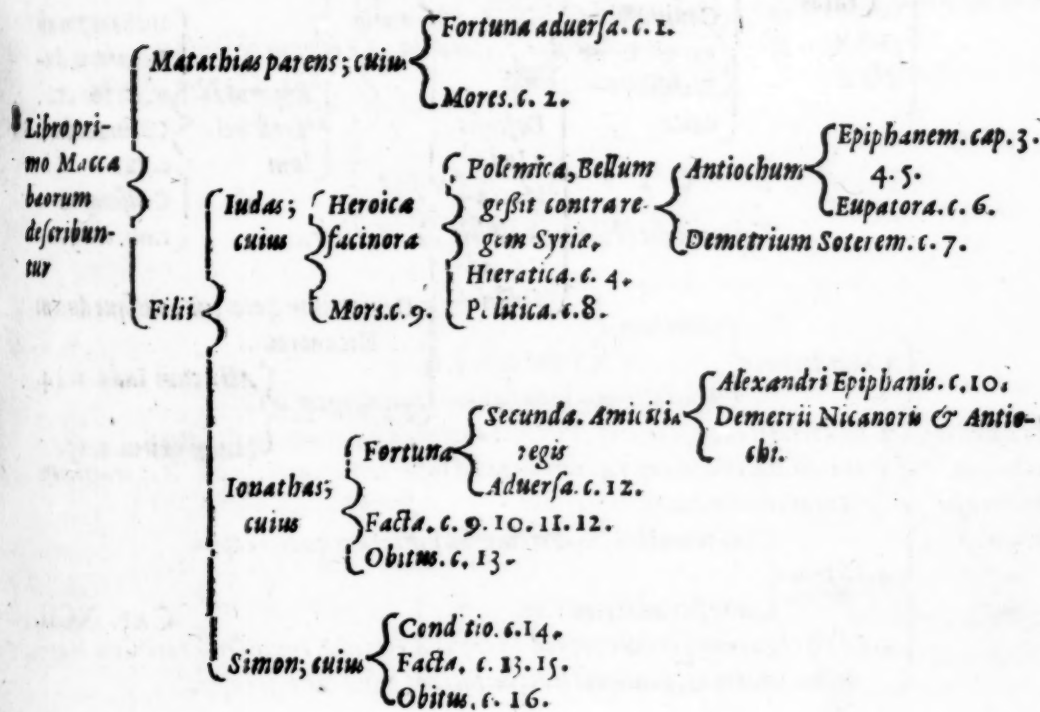 Fortuna aduerſa. c. 1.
Matathias parens; cuius
Mores. c. 2.
Libro pri-
mo Macca
bæorum
deſcribun-
tur
Filii
Iudas;
cuius
Heroica
facinora
Mors. c. 9.
Polemica, Bellum
geſsit contra re-
gem Syriæ,
Antiochum
Epiphanem. cap. 3.
4. 5.
Eupatora. c. 6.
Demetrium Soterem. c. 7.
Hieratica. c. 4.
Politica. c. 8.
Ionathas;
cuius
Fortuna
Secunda. Amicitia
regis
Alexandri Epiphanis. c. 10.
Demetrii Nicanoris & Antio-
chi.
Aduerſa. c. 12.
Facta. c. 9. 10. 11. 12.
Obitus. c. 13.
Simon; cuius
Cond tio. c. 14.
Facta. c. 13. 15.
Obitus. c. 16.